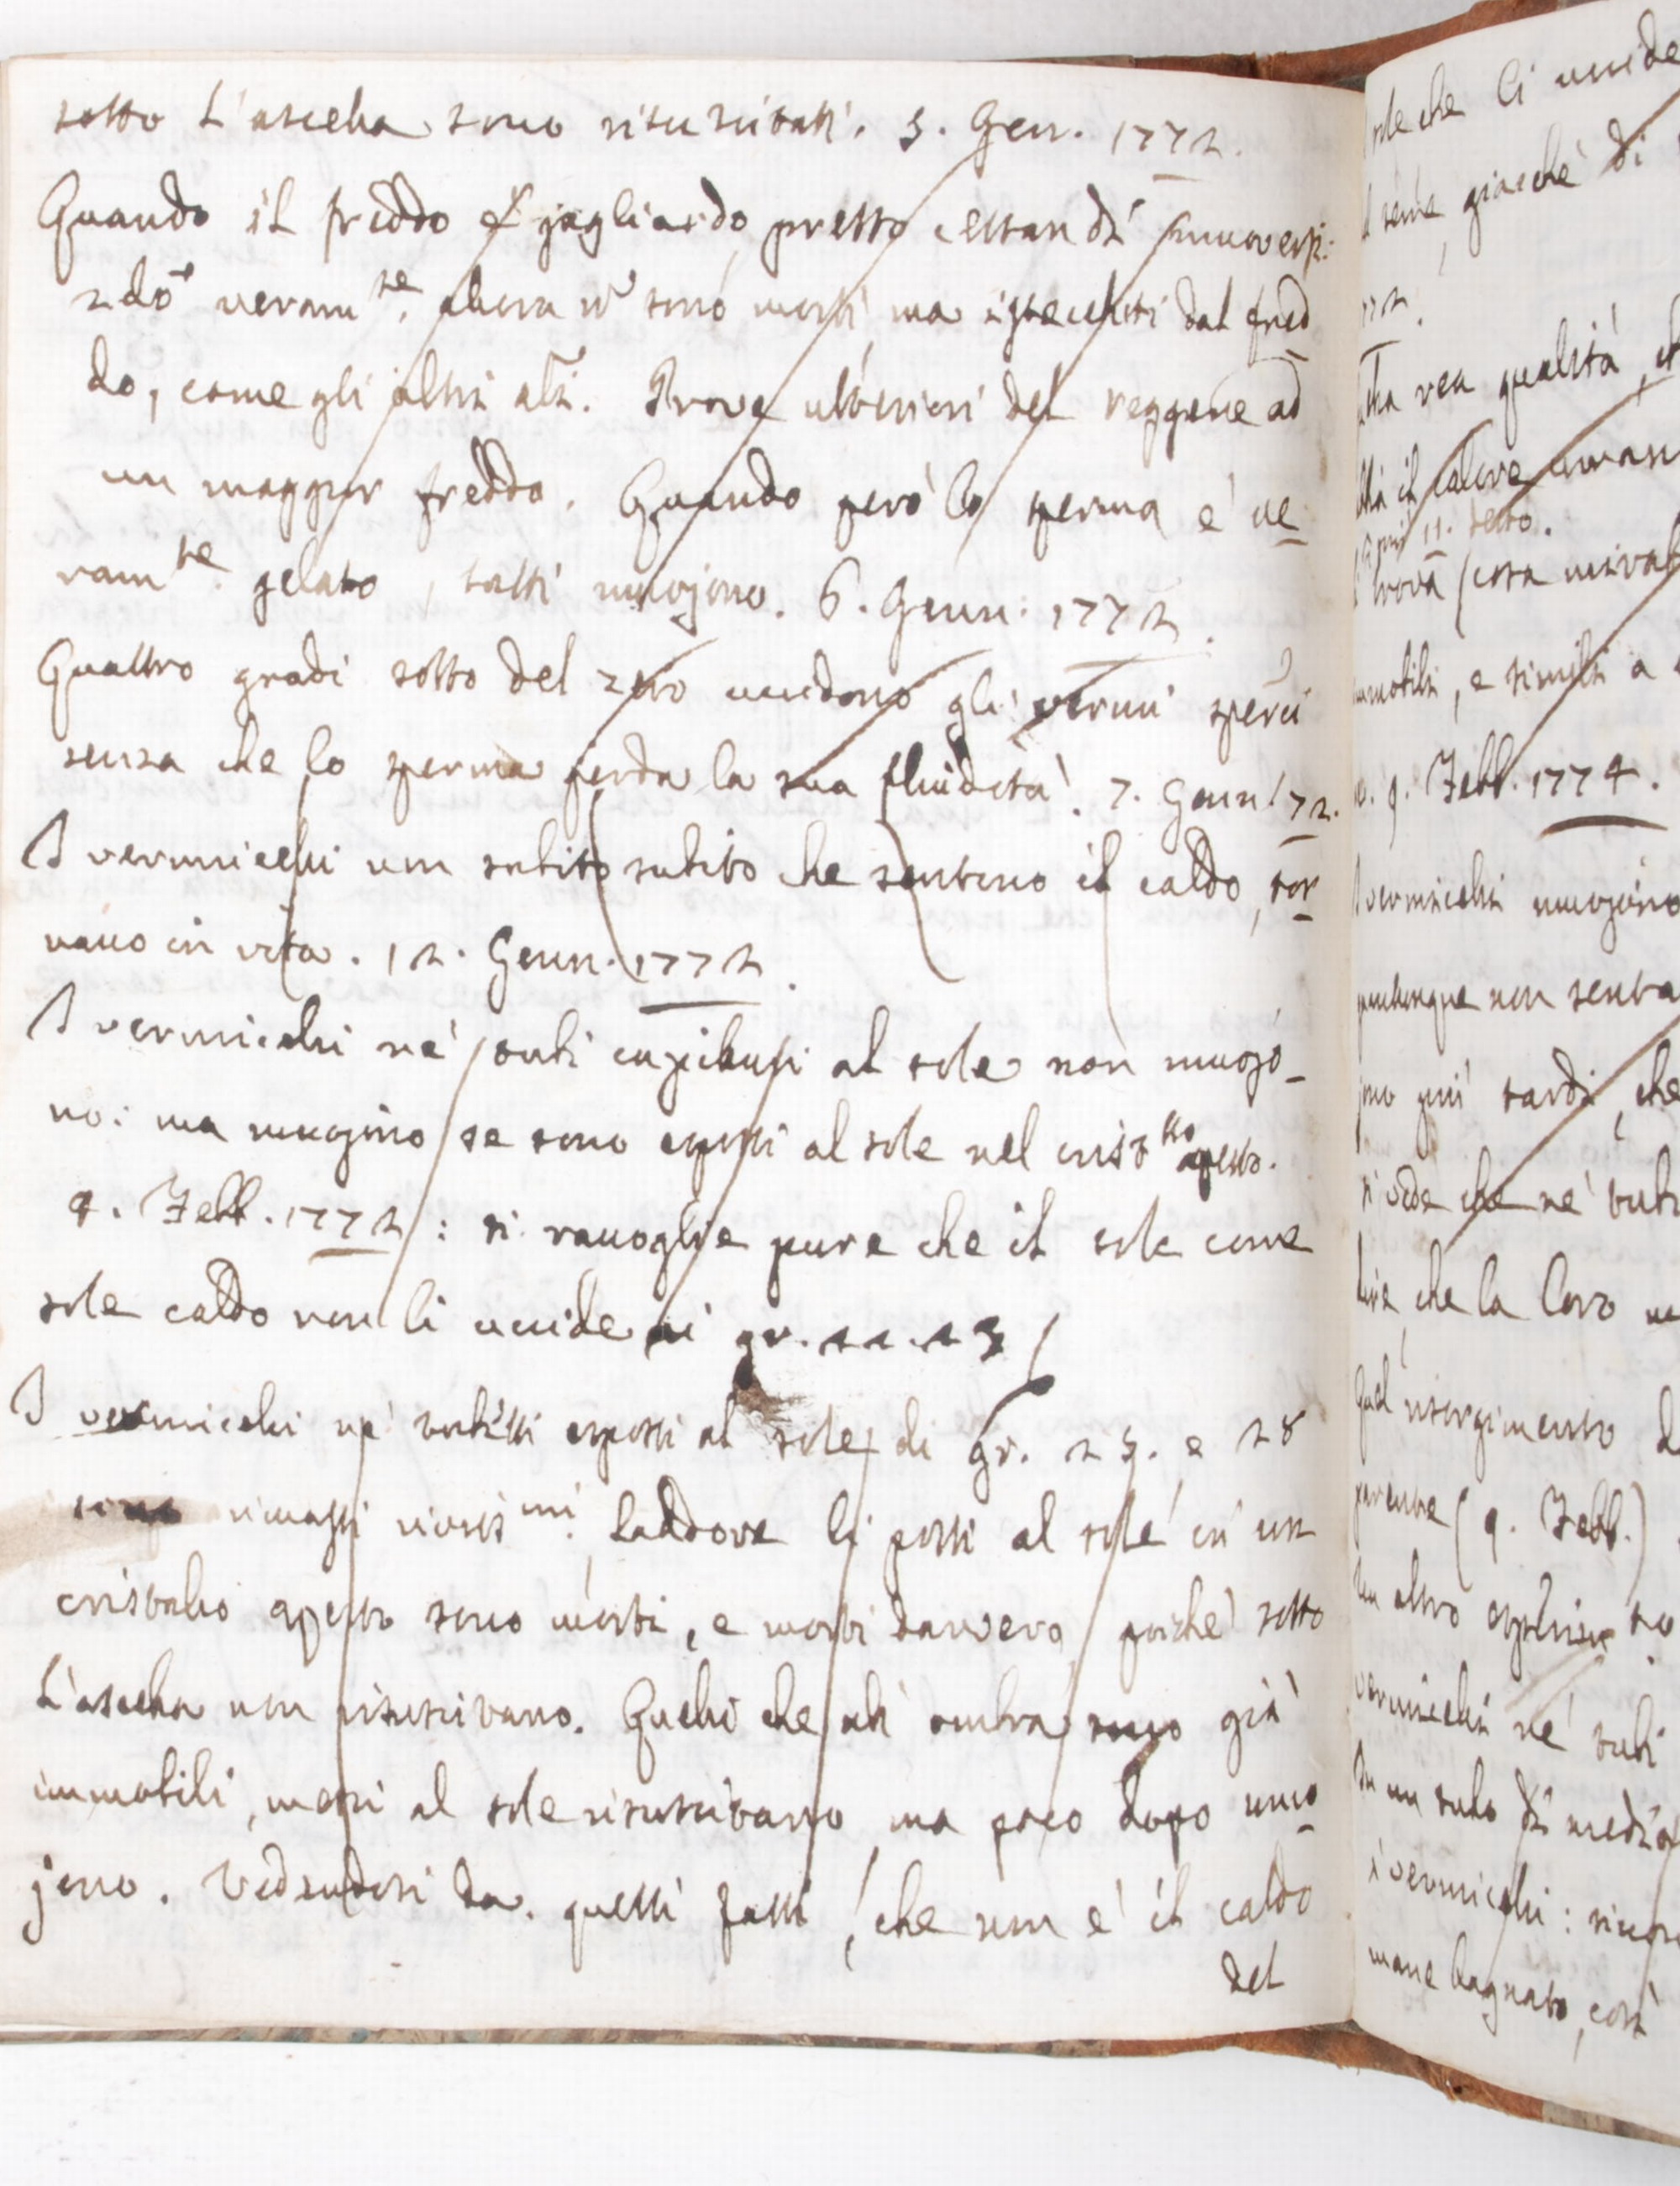 sotto l'ascella sono risuscitati. 5. Gen. 1772.
Quando il freddo è gagliardo, presto cessan di muoversi:
veram.te allora nõ sono morti, ma istecchiti dal fred
do, come gli altri ali. Prove ulteriori del reggere ad
un maggior freddo. Quando però lo sperma è ve
ram.te gelato, tutti muojono. 6. Genn: 1772.
Quattro gradi sotto del zero uccidono gli vermi sperci
senza che lo sperma perda la sua fluidità. 7. Genn. 72.
I vermicelli non subito subito che sentono il caldo, tor
nano in vita. 12. Genn. 1772.
I vermicelli ne' tubi capillari al sole non muojo
no: ma muojono se sono esposti al sole nel crist.llo aperto.
9. Febb. 1772: si raccoglie pure che il sole come
sole caldo non li uccide ai gr.
I vermicelli ne' tubetti esposti al sole di gr. 25. e 28
sono rimasti viviss.mi. Laddove li posti al sole in un
cristallo aperto sono morti, e morti davvero, poichè sotto
l'ascella non risuscitano. Quelli che all' ombra sono già
immobili, messi al sole risuscitano, ma poco dopo muo
jono. Vedendosi da questi fatti, che non è il caldo
del
sole che li uccide
seme, giacchè di
rea qualità, il
il calore
11. detto.
trova (cosa mirab
immobili, e simili a
9. Febb. 1774.
I vermicelli muojono
quantunque non senta
più tardi, che
si vede che ne' tubi
dire che la loro
Qual risorgimento d
(9. Febb.)
Un altro
vermicelli ne' tubi
In un tubo di
i vermicelli:
mane bagnato, così